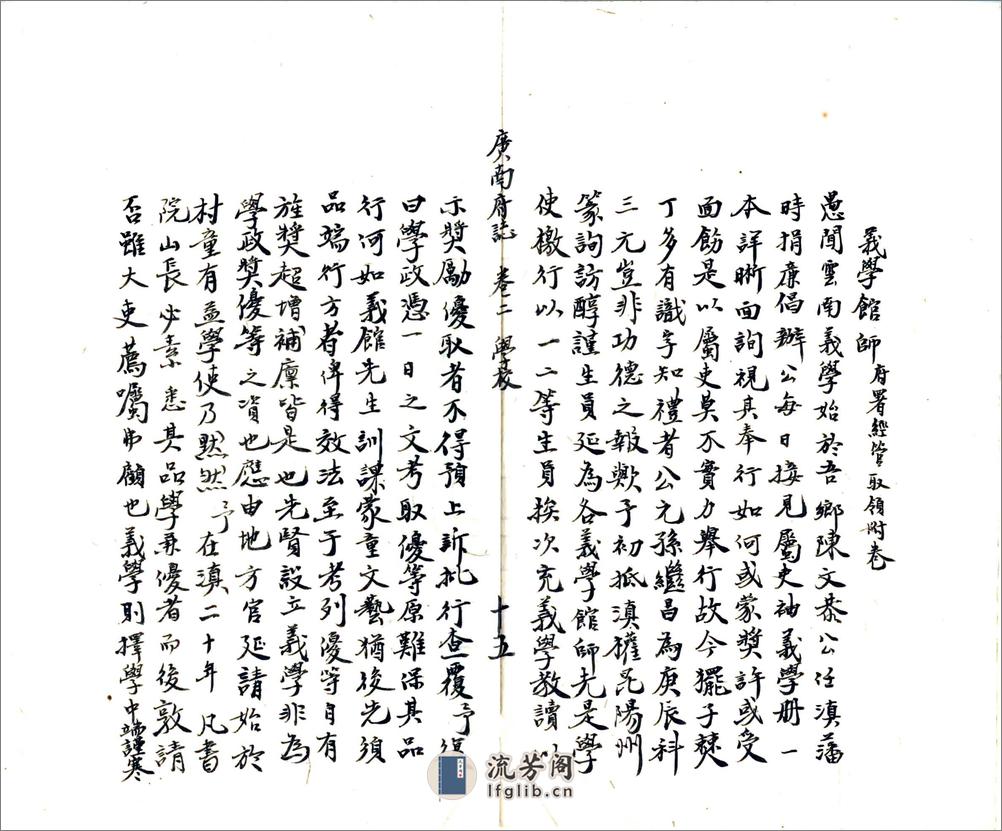 義學館師 府署經管取領附卷
愚聞雲南義學始於吾鄉陳文恭公任滇藩
時捐廉倡辦公每日接見屬吏袖義學册一
本詳晰面詢視其奉行如何或蒙獎許或受
面飭是以屬吏莫不實力舉行故今擺子僰
丁多有識字知禮者公元孫繼昌為庚辰科
三元豈非功德之報歟予初抵滇權昆陽州
篆詢訪醇謹生員延為各義學館師先是學
使檄行以一二等生員挨次充義學教讀以
廣南府誌 卷二 學校 十五
示獎勵優取者不得預上訴批行查覆予復
曰學政憑一日之文考取優等原難保其品
行何如義館先生訓課蒙童文藝猶後先須
品端行方者俾得效法至于考列優等自有
旌獎超增補廩皆是也先賢設立義學非為
學政獎優等之資也應由地方官延請始於
村童有益學使乃默然予在滇二十年凡書
院山長必素悉其品學兼優者而後敦請
否雖大吏薦囑弗顧也義學則擇學中端謹寒
流芳阁
lfglib.cn